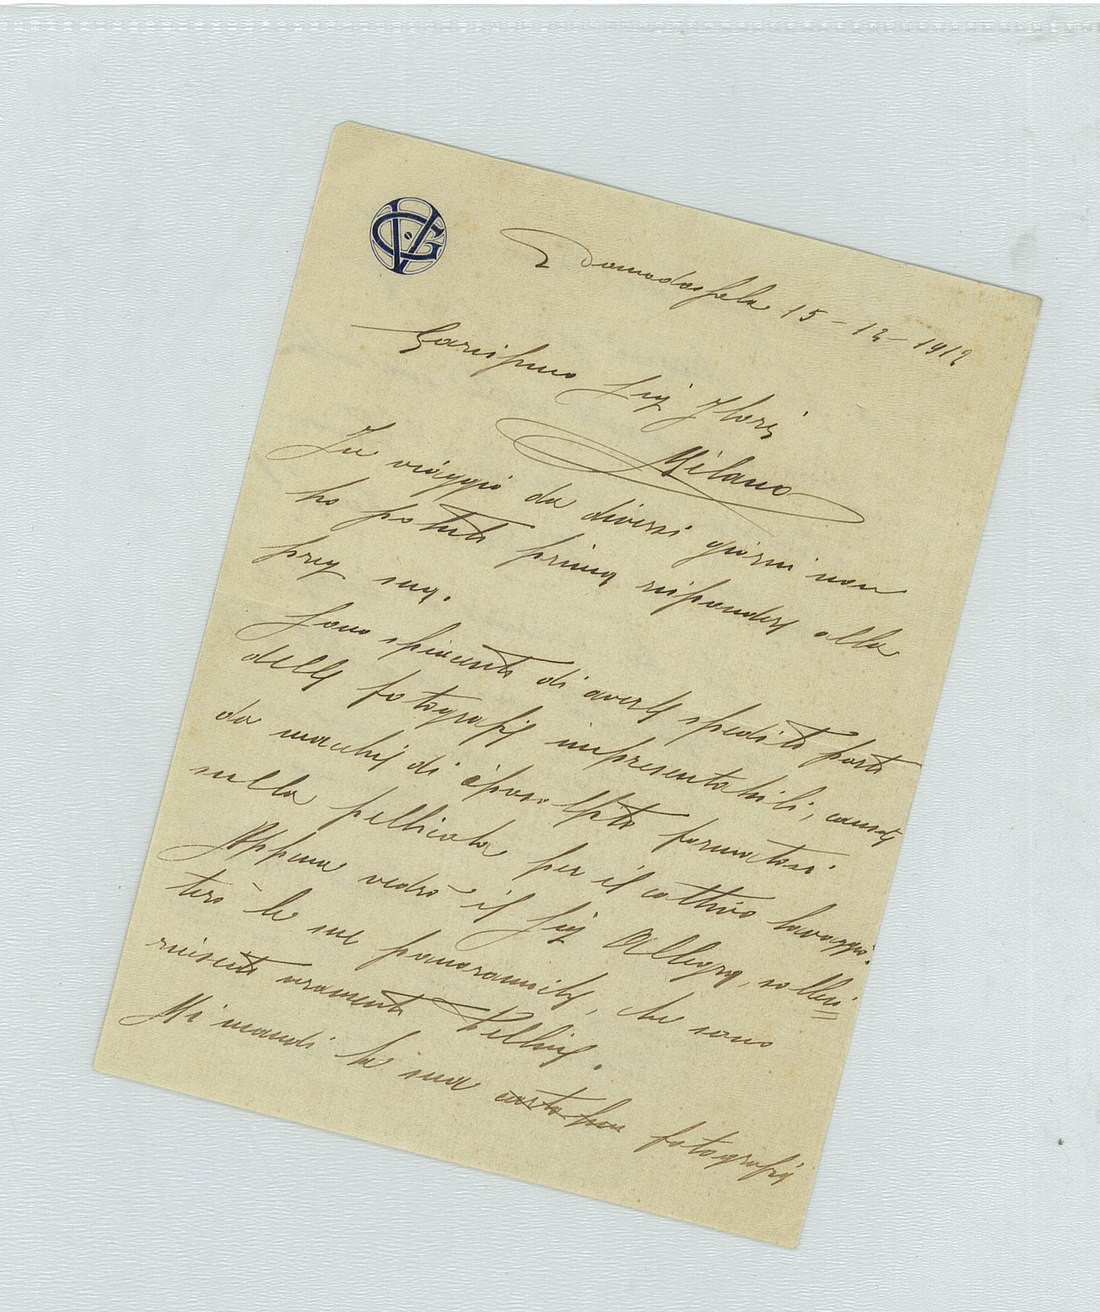 Domodossola 15-12-1912
Carissimo Sig. Floris
Milano
In viaggio da diversi giorni non
ho potuto prima rispondere alla
preg sua.
Sono spiacente di averle spedito parte
delle fotografie impresentabili, causa
da macchie di iposolfito formatosi
nella pellicola per il cattivo lavaggio.
Appena vedrò il Sig Allegra, solleci=
terò le sue panoramiche, che sono
riuscite veramente belline.
Mi mandi la sua fotografia